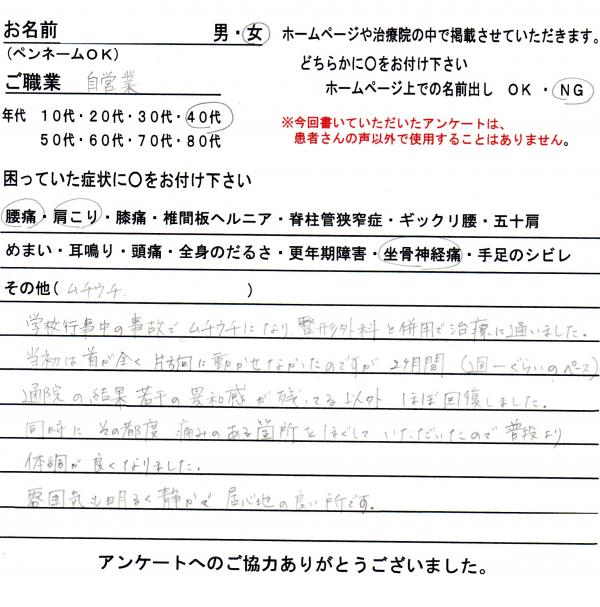 お名前 男・女
(ペンネームOK)
ご職業 自営業
年代 10代・20代・30代・40代
50代・60代・70代・80代
ホームページや治療院の中で掲載させていただきます。
どちらかに〇をお付け下さい
ホームページ上での名前出し OK・NG
※今回書いていただいたアンケートは、
患者さんの声以外で使用することはありません。
困っていた症状に〇をお付け下さい
腰痛・肩こり・膝痛・椎間板ヘルニア・脊柱管狭窄症・ギックリ腰・五十肩
めまい・耳鳴り・頭痛・全身のだるさ・更年期障害・坐骨神経痛・手足のシビレ
その他( ムチウチ )
学校行事中の事故でムチウチになり、整形外科と併用で治療に通いました。
当初は首が全く片方向に動かせなかったのですが 2ヶ月間 (2週一ぐらいのペース)
通院の結果 若干の異和感が残ってる以外 ほぼ回復しました。
同時に その都度 痛みのある箇所をほぐしていただいたので普段より
体調が良くなりました。
雰囲気も明るく静かで 居心地の良い所です。
アンケートへのご協力ありがとうございました。